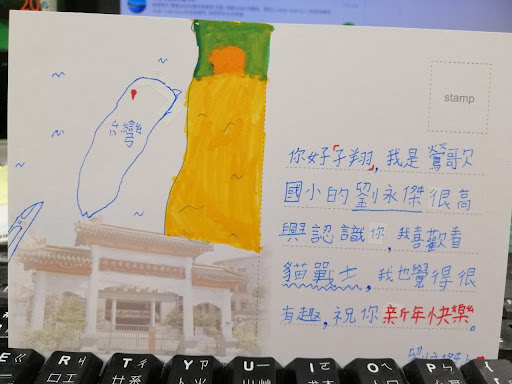 台灣
stamp
你好「子翔」,我是鶯歌
國小的劉永傑很高
興認識你,我喜歡看
貓戰士,我也覺得很
有趣,祝你新年快樂。
劉永傑
E R T Y U I O P